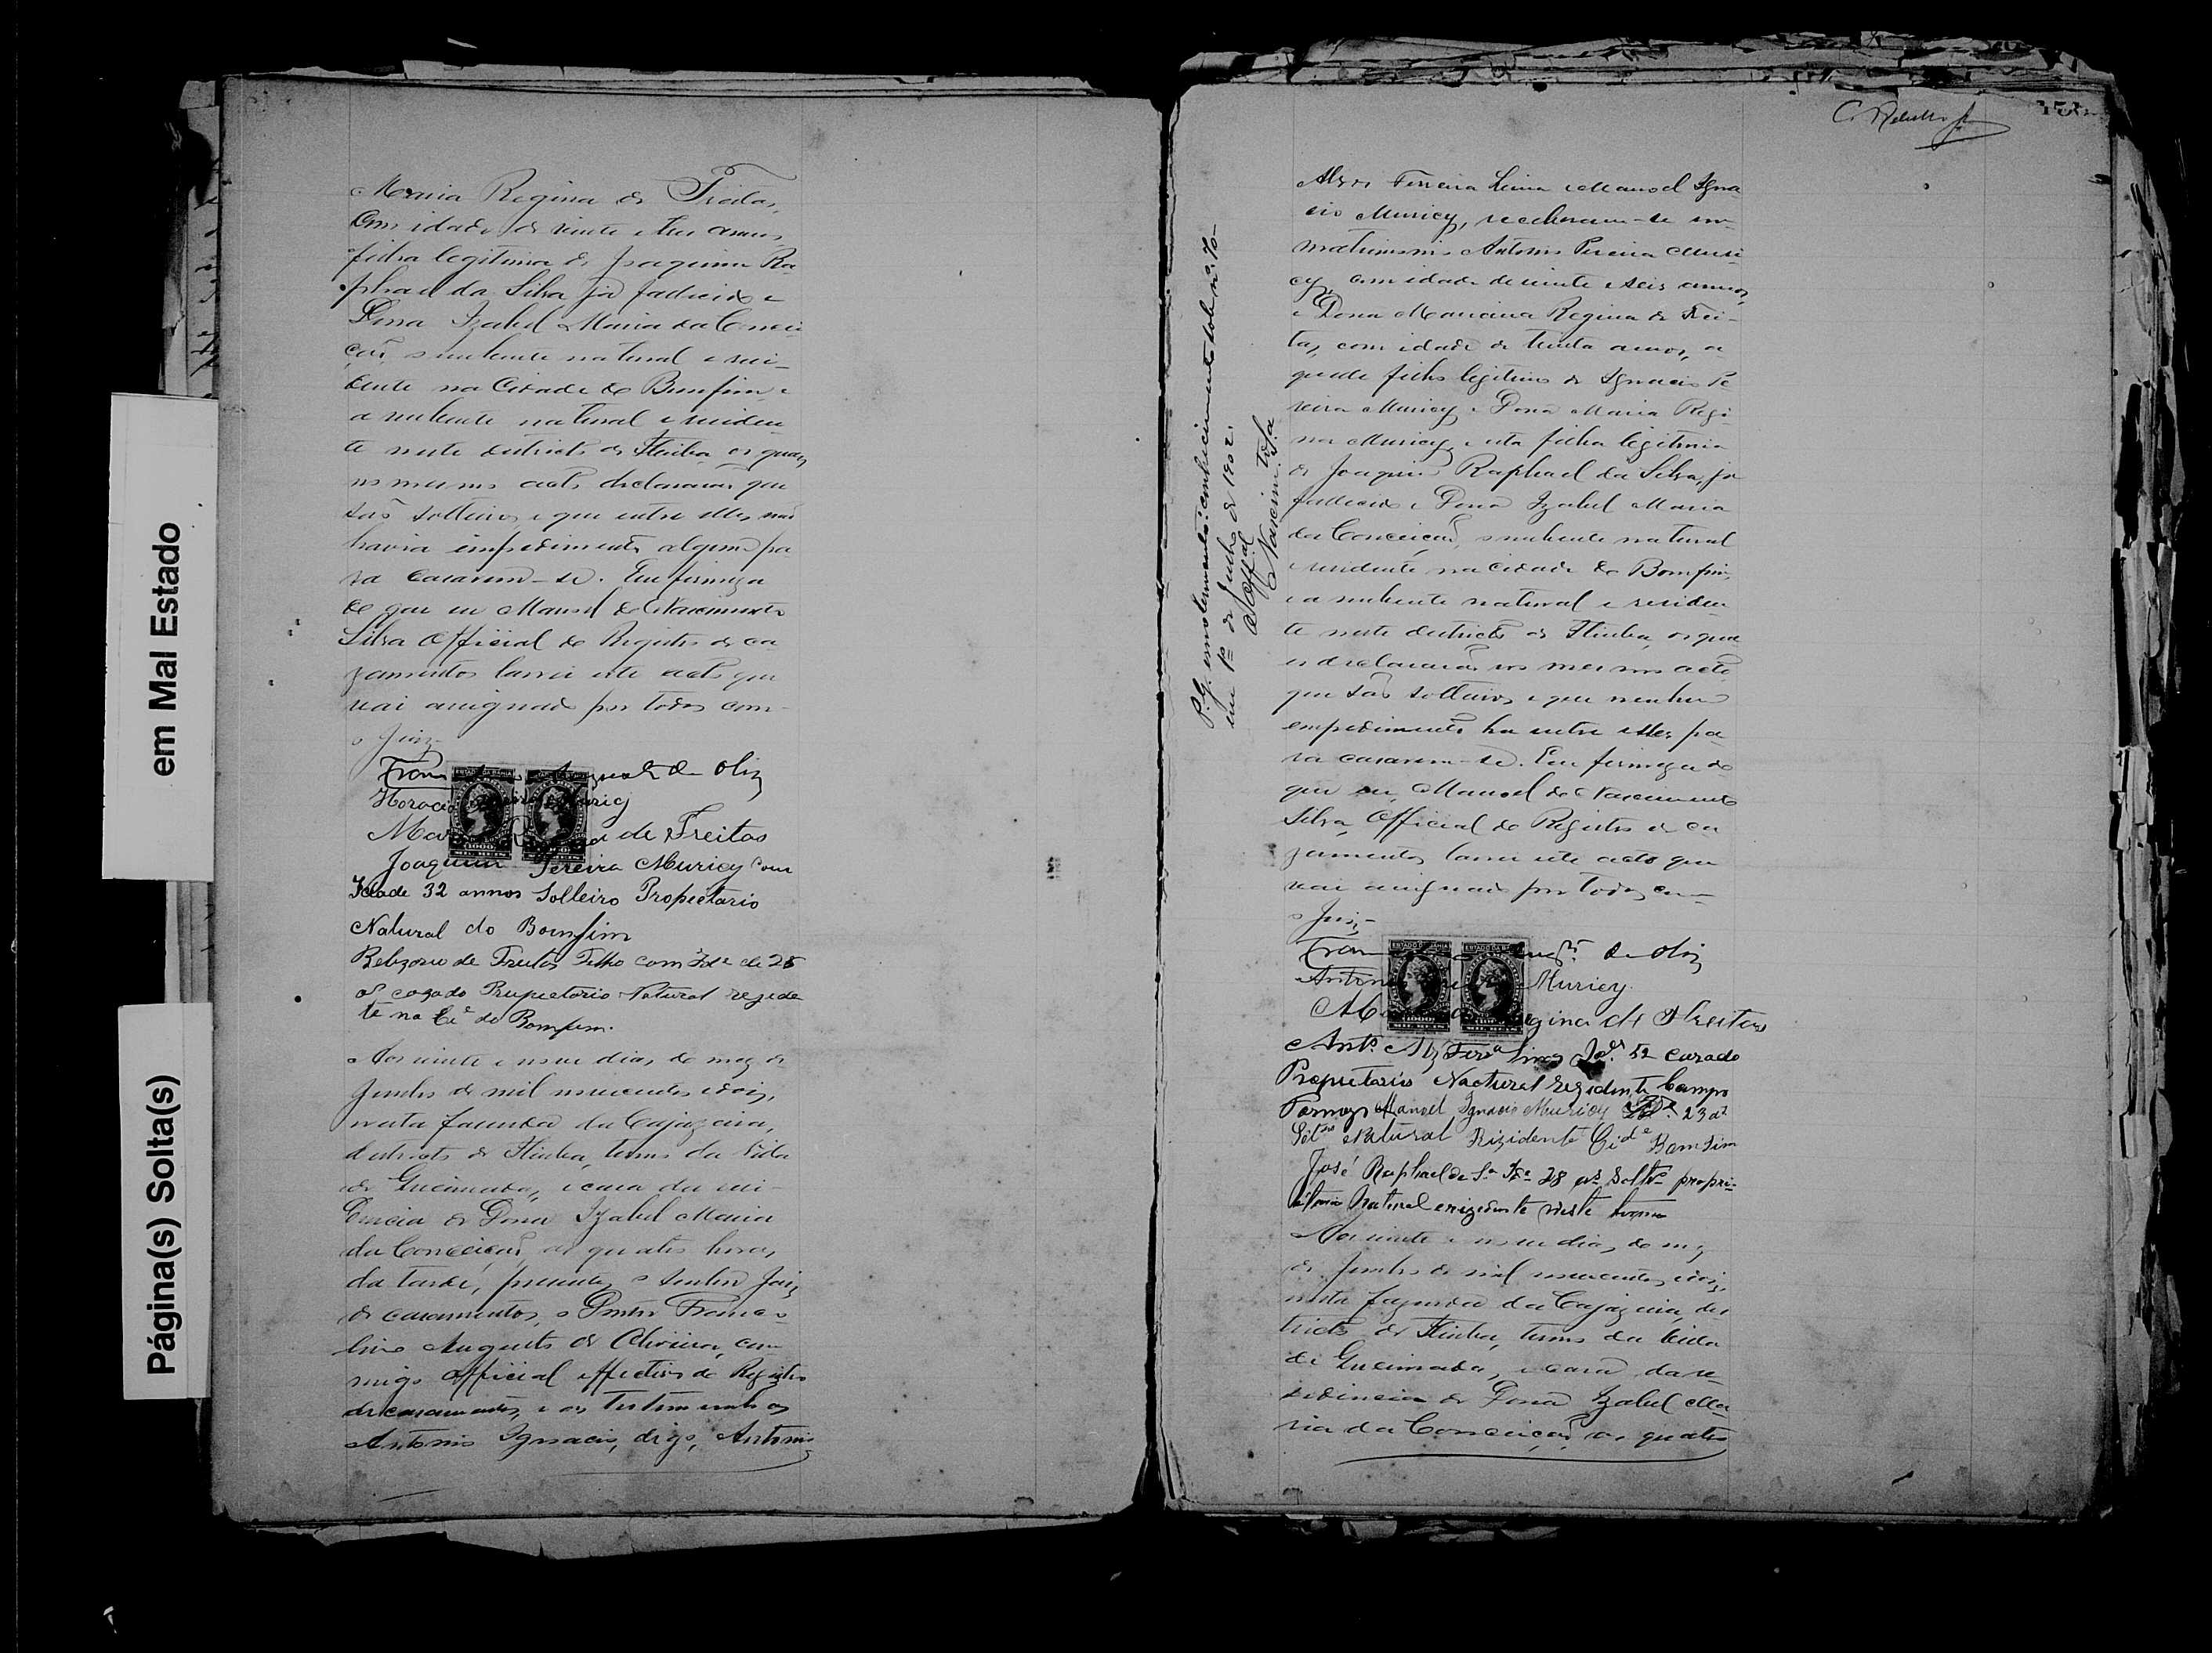 em Mal Estado
Página(s) Solta(s)
Maria Regina de Freitas,
com idade de vinte e tres annos,
filha legitima de Joaquim Ra
phael da Silva já fallecido e
Dona Izabel Maria da Concei
ção, o nubente natural e resi-
dente na Cidade do Bomfim e
a nubente natural e residen
te neste districto de Itiuba, os quaes
no mesmo acto declararão que
são solteiros e que entre elles não
havia impedimento algum pa
ra casarem-se. Em firmeza
do que eu Manoel do Nascimento
Silva Official do Registro de ca
zamentos lavrei este acto que
vai assignado por todos com
o Juiz
Augusto de Oliv
Horacio Muricy
de Freitas
Joaquim Pereira Muricy com
Idade 32 annos Solteiro Propietario
Natural do Bomfim
de Freitas Filho com Ide de 25
as cazado Propietario Natural rezide
te na Cie do Bomfim.
Aos vinte e nove dias do mez de
Junho de mil novecentos e dois,
nesta fazenda da Cajazeira,
districto de Itiuba, termo da Villa
de Queimadas, e casa da resi-
dencia de Dona Izabel Maria
da Conceição, as quatro horas
da tarde, presentes o Senhor Juiz
de casamentos, o Senhor Trance
lino Augusto de Oliveira, com
migo Official effectivo do Registro
de casamentos, e as testemunhas
Antonio Ignacio, digo, Antonio
C.
Alves Ferreira Lima e Manoel Igna
cio Muricy, receberam-se em
matrimonio Antonio Pereira Muri
cy, com idade de vinte e seis annos,
e Dona Marianna Regina de Frei-
tas, com idade de trinta annos, a
quelle filho legitimo de Ignacio Pe
reira Muricy e Dona Maria Regi
na Muricy, e esta filha legitima
de Joaquim Raphael da Silva, ja
fallecido e Dona Izabel Maria
da Conceição, o nubente natural
e residente na cidade do Bomfim,
e a nubente natural e residen
te neste districto de Itiuba, os qua
es declararão nos mesmos acto
que são solteiros e que nenhum
empedimento ha entre elles pa-
ra casarem-se. Em firmeza do
que eu, Manoel do Nascimento
Silva, Official do Registro de ca
zamentos lavrei este acto que
vai assignado por todos com
o Juiz
de Oliv
Antonio Muricy
Regina de Freitas
Anto Alz Ferra Lima Ide 52 cazado
Propietario Nactural rezidente Campo
Formozo Manoel Ignacio Muricy Ide 23 as
Natural Rizidente Cide Bomfim
José Raphael da Sa Ide 28 as Soltro propri-
etario Natural e rizidente neste termo
Aos vinte e nove dias do mez
de Junho de mil novecentos e dois,
nesta fazenda da Cajazeira, dis
tricto de Itiuba, termo da Villa
de Queimadas, e casa da re
sidencia de Dona Izabel Ma
ria da Conceição, as quatro
P.G. emolumento: conhecimento sob nº 70
em 1º de Julho de 1902.
O Offial
Nascimto Sa
ESTADO DA BAHIA
1000
MIL REIS